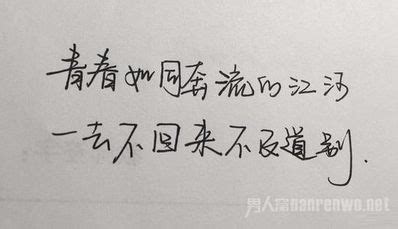 青春如同奔流的江河
一去不回来不及道别.
男人窝nanrenwo.net